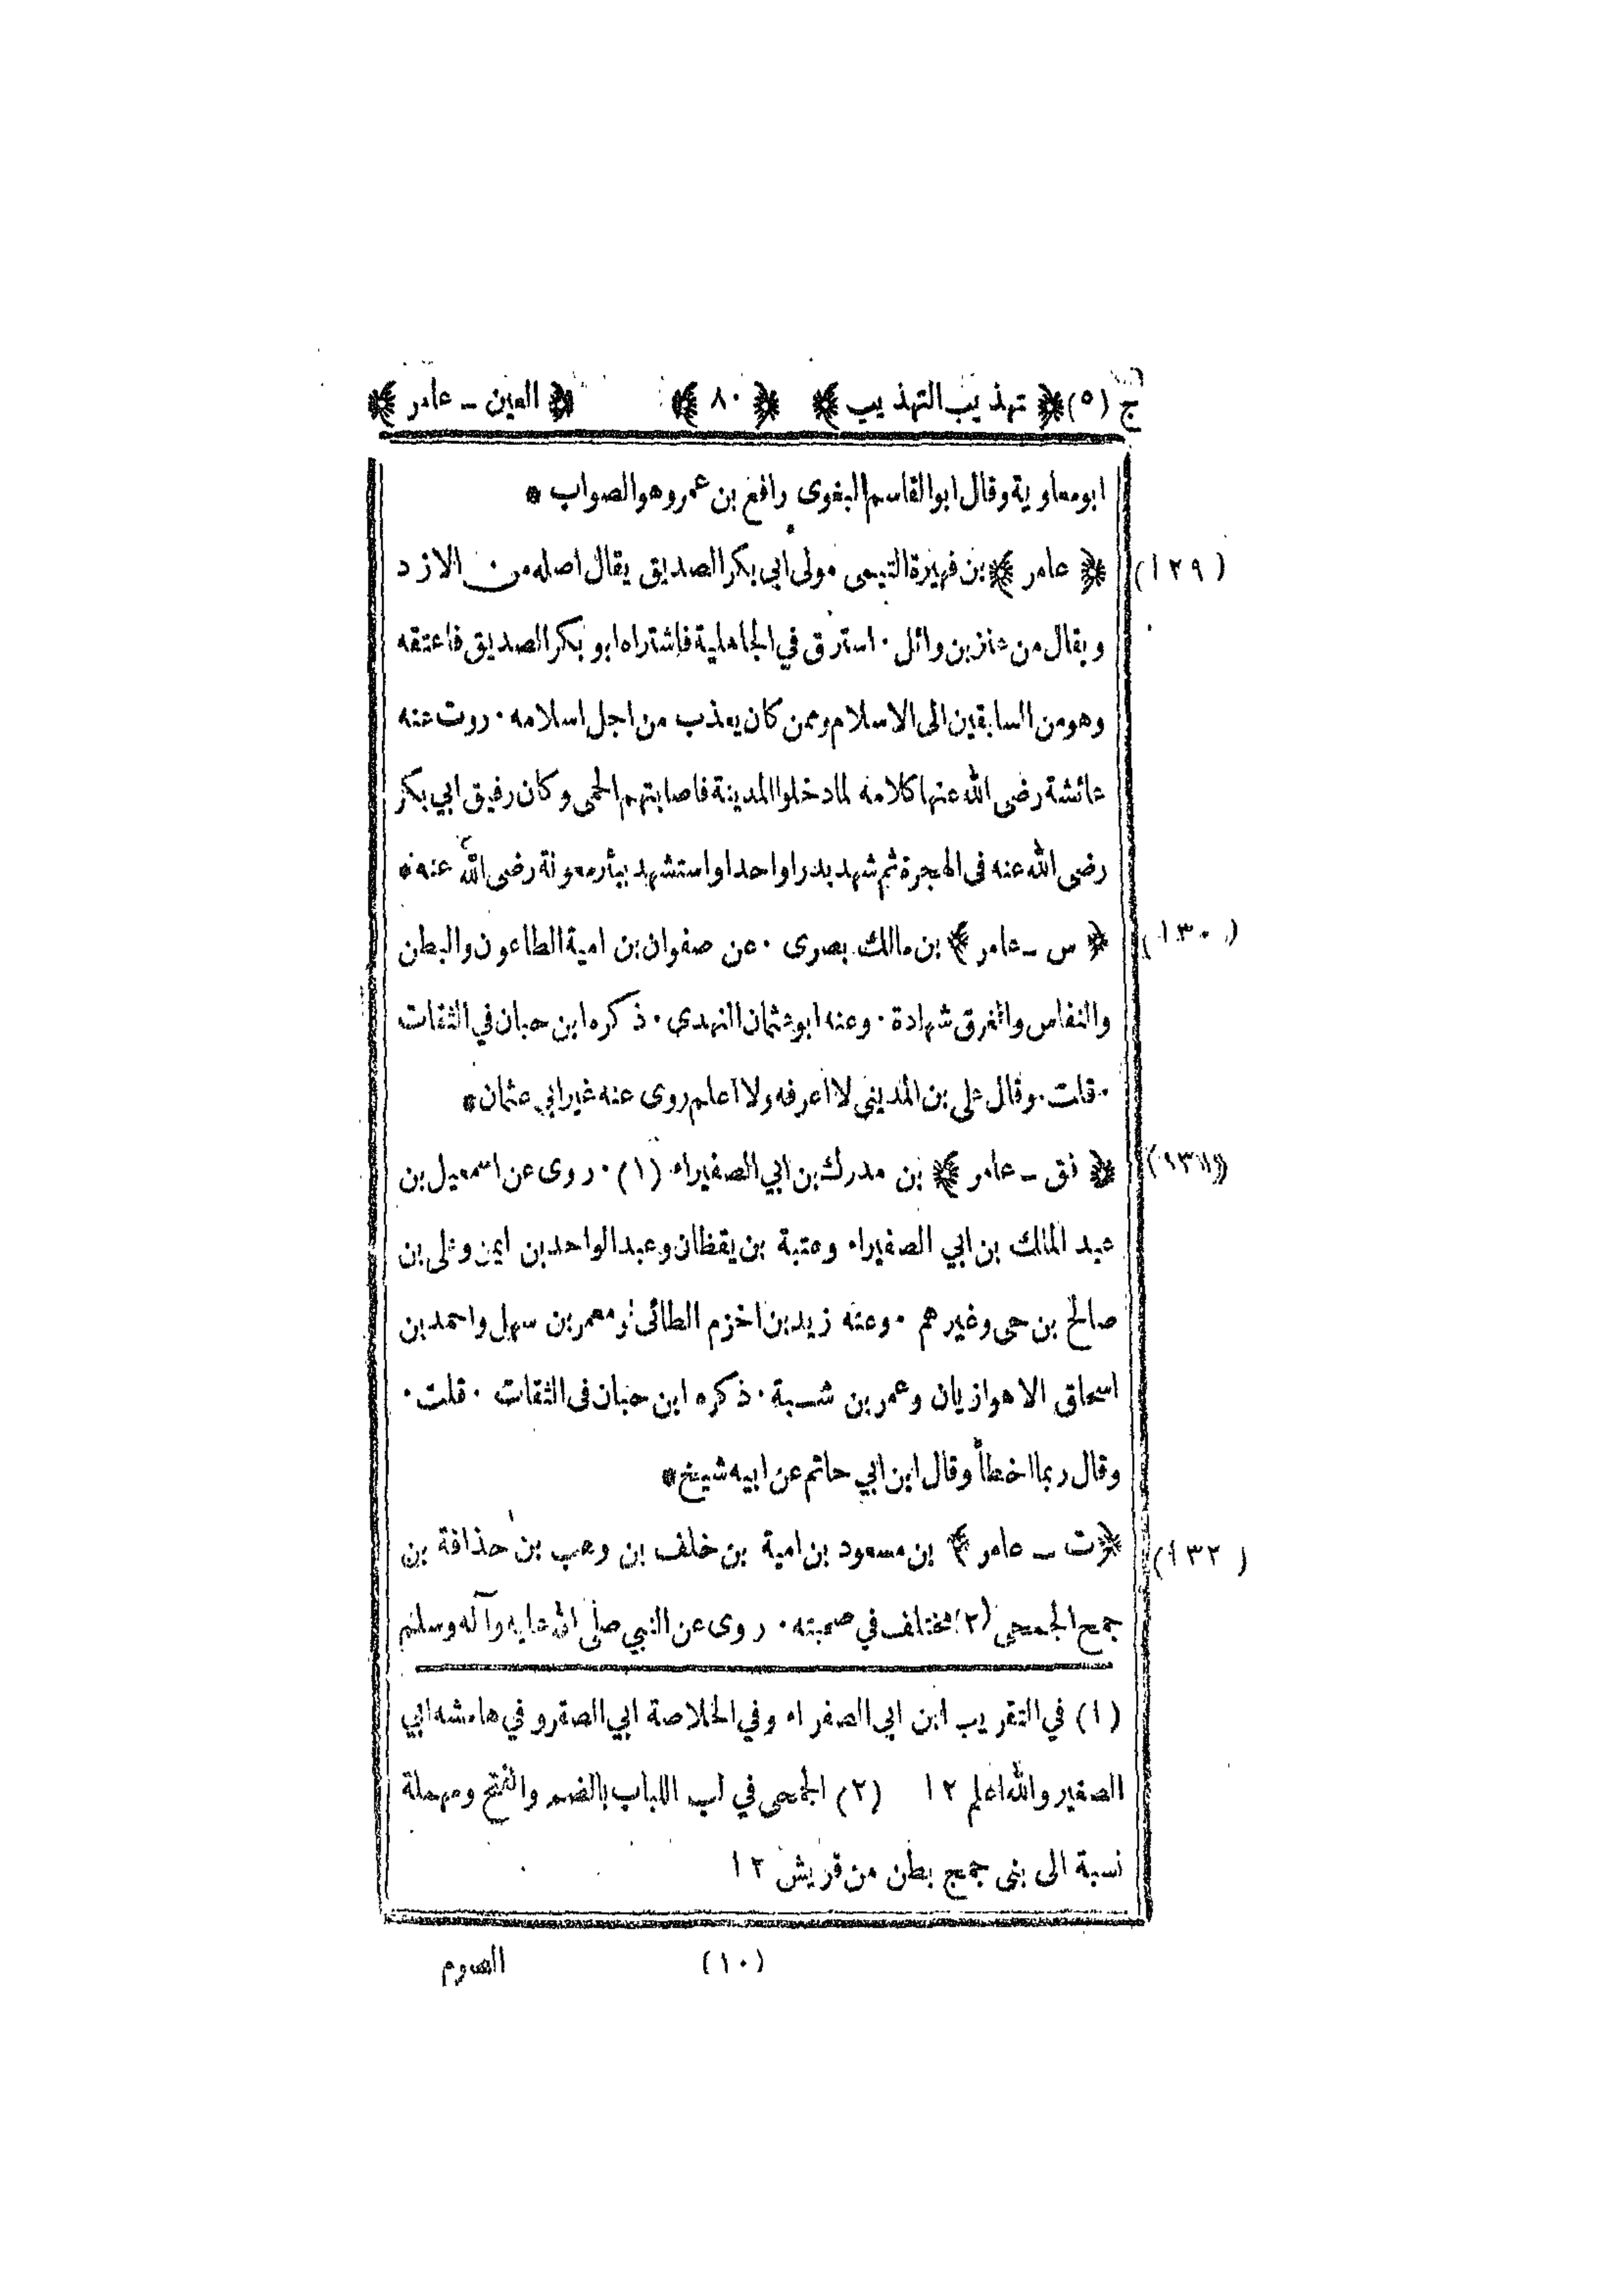 ج (٥) ﴿ تهذيب التهذيب ﴾ ﴿ ٨٠ ﴾ ﴿ العين ـ عامر ﴾
ابومعاوية وقال ابوالقاسم البغوى رافع بن عمرو وهو الصواب *
(١٢٩) ﴿ عامر ﴾ بن فهيرة التيمى مولى ابي بكر الصديق يقال اصله من الازد
ويقال من عنز بن وائل . استرق في الجاهلية فاشتراه ابو بكر الصديق فاعتقه
وهو من السابقين الى الاسلام وممن كان يعذب من اجل اسلامه . روت عنه
عائشة رضى الله عنها كلامه لما دخلوا المدينة فاصابتهم الحمى وكان رفيق ابي بكر
رضى الله عنه فى الهجرة ثم شهد بدرا واحدا واستشهد ببئر معونة رضى الله عنه *
(١٣٠) ﴿ س ـ عامر ﴾ بن مالك بصرى . عن صفوان بن امية الطاعون والبطن
والنفاس والغرق شهادة . وعنه ابوعثمان النهدي . ذكره ابن حبان في الثقات
. قلت . وقال على بن المديني لا اعرفه ولا اعلم روى عنه غير ابي عثمان *
﴿ فق ـ عامر ﴾ بن مدرك بن ابي الصفيراء (١) . روى عن اسمعيل بن
عبد الملك بن ابي الصفيراء وعتبة بن يقظان وعبد الواحد بن ايمن وعلى بن
صالح بن حى وغيرهم . وعنه زيد بن اخزم الطائى ومعمر بن سهل واحمد بن
اسحاق الاهوازيان وعمر بن شبة . ذكره ابن حبان فى الثقات . قلت .
وقال ربما اخطأ وقال ابن ابي حاتم عن ابيه شيخ *
(١٣٢) ﴿ ت ـ عامر ﴾ بن مسعود بن امية بن خلف بن وهب بن حذافة بن
جمح الجمحى (٢) مختلف في صحبته . روى عن النبي صلى الله عليه وآله وسلم
(١) في التقريب ابن ابي الصفراء وفي الخلاصة ابي الصقر وفي هامشه ابي
الصفير والله اعلم ١٢ (٢) الجمحى في لب اللباب بالضم والفتح ومهملة
نسبة الى بنى جمح بطن من قريش ١٢
(١٠) الصوم